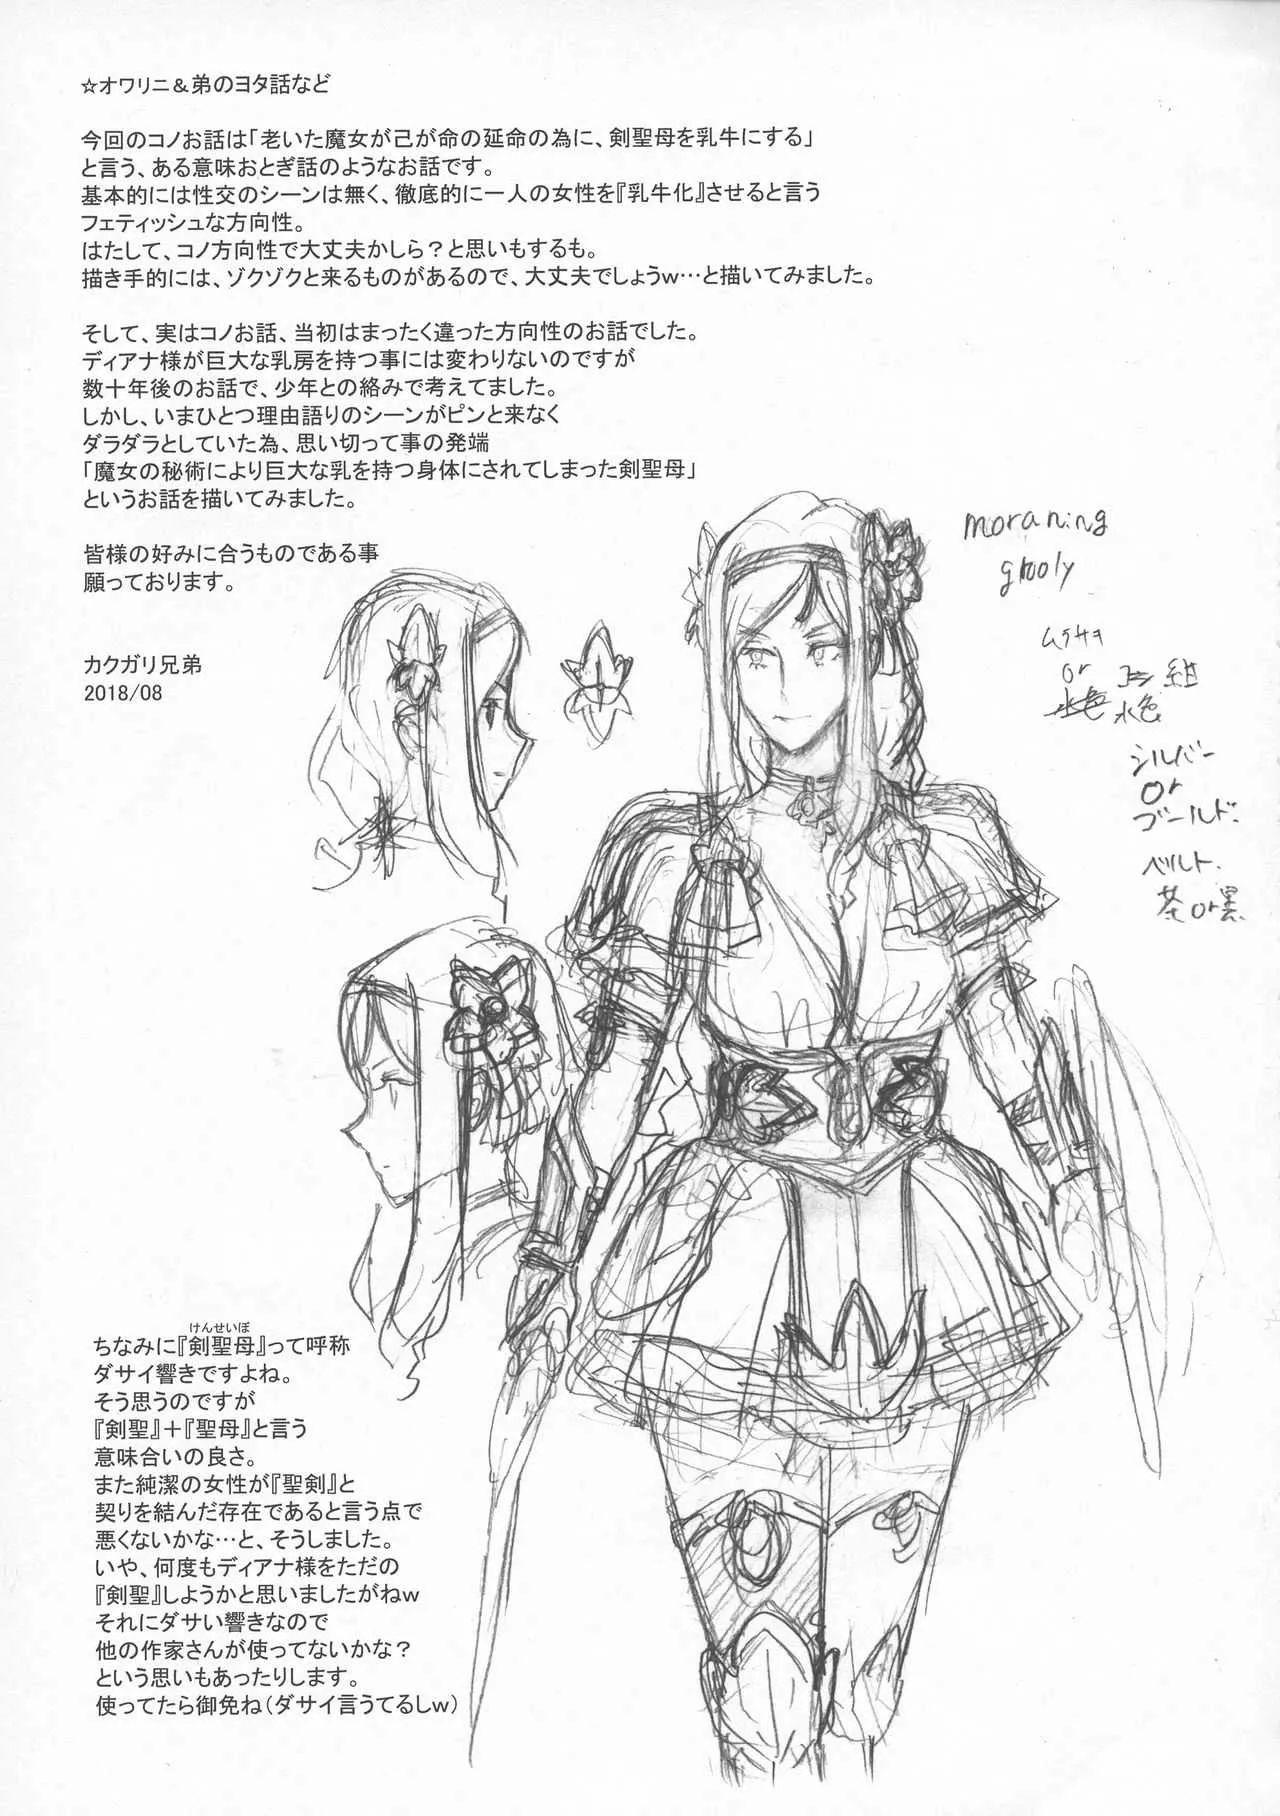 ☆オワリニ＆弟のヨタ話など
今回のコノお話は「老いた魔女が己が命の延命の為に、剣聖母を乳牛にする」
と言う、ある意味おとぎ話のようなお話です。
基本的には性交のシーンは無く、徹底的に一人の女性を『乳牛化』させると言う
フェティッシュな方向性。
はたして、コノ方向性で大丈夫かしら？と思いもするも。
描き手的には、ゾクゾクと来るものがあるので、大丈夫でしょうｗ…と描いてみました。
そして、実はコノお話、当初はまったく違った方向性のお話でした。
ディアナ様が巨大な乳房を持つ事には変わりないのですが
数十年後のお話で、少年との絡みで考えてました。
しかし、いまひとつ理由語りのシーンがピンと来なく
ダラダラとしていた為、思い切って事の発端
「魔女の秘術により巨大な乳を持つ身体にされてしまった剣聖母」
というお話を描いてみました。
皆様の好みに合うものである事
願っております。
カクガリ兄弟
2018/08
moraning
grooly
ムラサキ
or
水色
紺
水色
シルバー
or
ゴールド.
ベルト.
茶or黒.
けんせいぼ
ちなみに『剣聖母』って呼称
ダサイ響きですよね。
そう思うのですが
『剣聖』＋『聖母』と言う
意味合いの良さ。
また純潔の女性が『聖剣』と
契りを結んだ存在であると言う点で
悪くないかな…と、そうしました。
いや、何度もディアナ様をただの
『剣聖』しようかと思いましたがねｗ
それにダサい響きなので
他の作家さんが使ってないかな？
という思いもあったりします。
使ってたら御免ね（ダサイ言うてるしｗ）